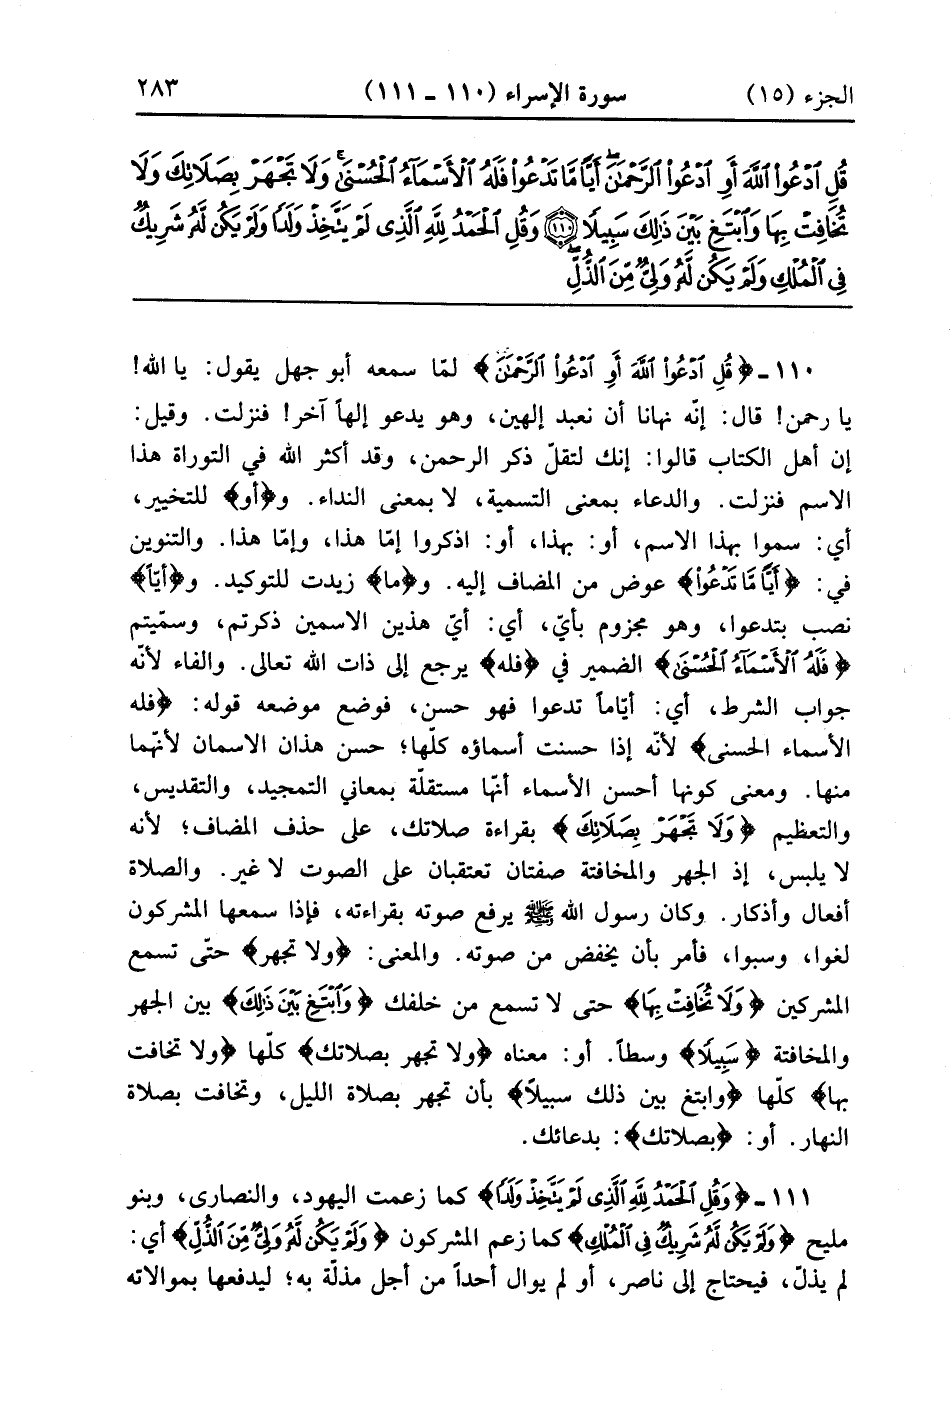 الجزء (١٥) سورة الإسراء (١١٠ ـ ١١١) ٢٨٣
قُلِ ٱدْعُوا۟ ٱللَّهَ أَوِ ٱدْعُوا۟ ٱلرَّحْمَٰنَ ۖ أَيًّا مَّا تَدْعُوا۟ فَلَهُ ٱلْأَسْمَآءُ ٱلْحُسْنَىٰ ۚ وَلَا تَجْهَرْ بِصَلَاتِكَ وَلَا
تُخَافِتْ بِهَا وَٱبْتَغِ بَيْنَ ذَٰلِكَ سَبِيلًا ﴿١١٠﴾ وَقُلِ ٱلْحَمْدُ لِلَّهِ ٱلَّذِى لَمْ يَتَّخِذْ وَلَدًا وَلَمْ يَكُن لَّهُۥ شَرِيكٌ
فِى ٱلْمُلْكِ وَلَمْ يَكُن لَّهُۥ وَلِىٌّ مِّنَ ٱلذُّلِّ ۖ
١١٠ ـ ﴿قُلِ ٱدْعُوا۟ ٱللَّهَ أَوِ ٱدْعُوا۟ ٱلرَّحْمَٰنَ﴾ لمّا سمعه أبو جهل يقول: يا الله!
يا رحمن! قال: إنّه نهانا أن نعبد إلهين، وهو يدعو إلهاً آخر! فنزلت. وقيل:
إن أهل الكتاب قالوا: إنك لتقلّ ذكر الرحمن، وقد أكثر الله في التوراة هذا
الاسم فنزلت. والدعاء بمعنى التسمية، لا بمعنى النداء. و﴿أو﴾ للتخيير،
أي: سموا بهذا الاسم، أو: بهذا، أو: اذكروا إمّا هذا، وإمّا هذا. والتنوين
في: ﴿أَيًّا مَّا تَدْعُوا۟﴾ عوض من المضاف إليه. و﴿ما﴾ زيدت للتوكيد. و﴿أيّاً﴾
نصب بتدعوا، وهو مجزوم بأيّ، أي: أيّ هذين الاسمين ذكرتم، وسمّيتم
﴿فَلَهُ ٱلْأَسْمَآءُ ٱلْحُسْنَىٰ﴾ الضمير في ﴿فله﴾ يرجع إلى ذات الله تعالى. والفاء لأنّه
جواب الشرط، أي: أيّاماً تدعوا فهو حسن، فوضع موضعه قوله: ﴿فله
الأسماء الحسنى﴾ لأنّه إذا حسنت أسماؤه كلّها؛ حسن هذان الاسمان لأنّهما
منها. ومعنى كونها أحسن الأسماء أنّها مستقلّة بمعاني التمجيد، والتقديس،
والتعظيم ﴿وَلَا تَجْهَرْ بِصَلَاتِكَ﴾ بقراءة صلاتك، على حذف المضاف؛ لأنه
لا يلبس، إذ الجهر والمخافتة صفتان تعتقبان على الصوت لا غير. والصلاة
أفعال وأذكار. وكان رسول الله ﷺ يرفع صوته بقراءته، فإذا سمعها المشركون
لغوا، وسبوا، فأمر بأن يخفض من صوته. والمعنى: ﴿ولا تجهر﴾ حتّى تسمع
المشركين ﴿وَلَا تُخَافِتْ بِهَا﴾ حتى لا تسمع من خلفك ﴿وَٱبْتَغِ بَيْنَ ذَٰلِكَ﴾ بين الجهر
والمخافتة ﴿سَبِيلًا﴾ وسطاً. أو: معناه ﴿ولا تجهر بصلاتك﴾ كلّها ﴿ولا تخافت
بها﴾ كلّها ﴿وابتغ بين ذلك سبيلاً﴾ بأن تجهر بصلاة الليل، وتخافت بصلاة
النهار. أو: ﴿بصلاتك﴾: بدعائك.
١١١ ـ ﴿وَقُلِ ٱلْحَمْدُ لِلَّهِ ٱلَّذِى لَمْ يَتَّخِذْ وَلَدًا﴾ كما زعمت اليهود، والنصارى، وبنو
مليح ﴿وَلَمْ يَكُن لَّهُۥ شَرِيكٌ فِى ٱلْمُلْكِ﴾ كما زعم المشركون ﴿وَلَمْ يَكُن لَّهُۥ وَلِىٌّ مِّنَ ٱلذُّلِّ﴾ أي:
لم يذلّ، فيحتاج إلى ناصر، أو لم يوال أحداً من أجل مذلّة به؛ ليدفعها بموالاته